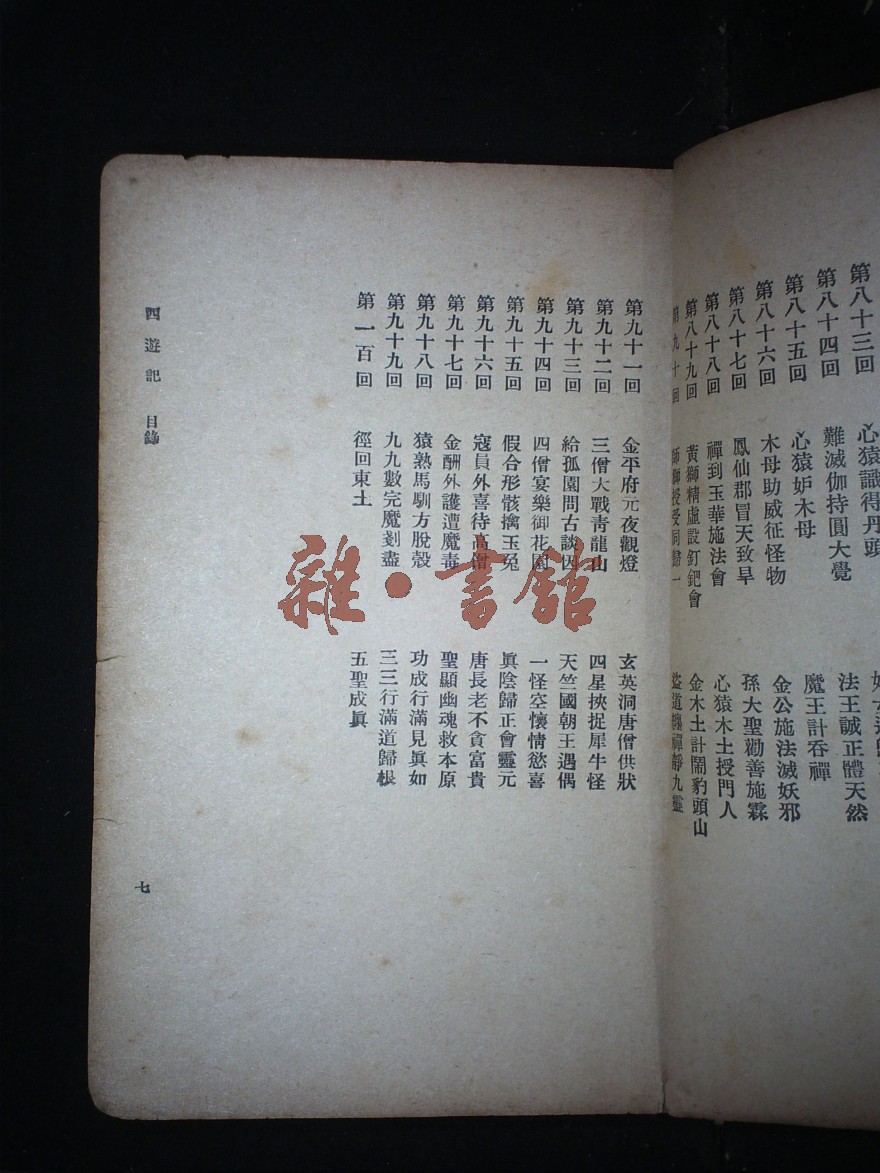 第八十三回 心猿識得丹頭
第八十四回 難滅伽持圓大覺 法王誠正體天然
第八十五回 心猿妒木母 魔王計吞禪
第八十六回 木母助威征怪物 金公施法滅妖邪
第八十七回 鳳仙郡冒天致旱 孫大聖勸善施霖
第八十八回 禪到玉華施法會 心猿木土授門人
第八十九回 黃獅精虛設釘鈀會 金木土計鬧豹頭山
第九十回 師獅授受同歸一 盜道纏禪靜九靈
第九十一回 金平府元夜觀燈 玄英洞唐僧供狀
第九十二回 三僧大戰青龍山 四星挾捉犀牛怪
第九十三回 給孤園問古談因 天竺國朝王遇偶
第九十四回 四僧宴樂御花園 一怪空懷情慾喜
第九十五回 假合形骸擒玉兔 眞陰歸正會靈元
第九十六回 寇員外喜待高僧 唐長老不貪富貴
第九十七回 金酬外護遭魔毒 聖顯幽魂救本原
第九十八回 猿熟馬馴方脫殼 功成行滿見眞如
第九十九回 九九數完魔剗盡 三三行滿道歸根
第一百回 徑回東土 五聖成眞
西遊記 目錄
七
雜·書館